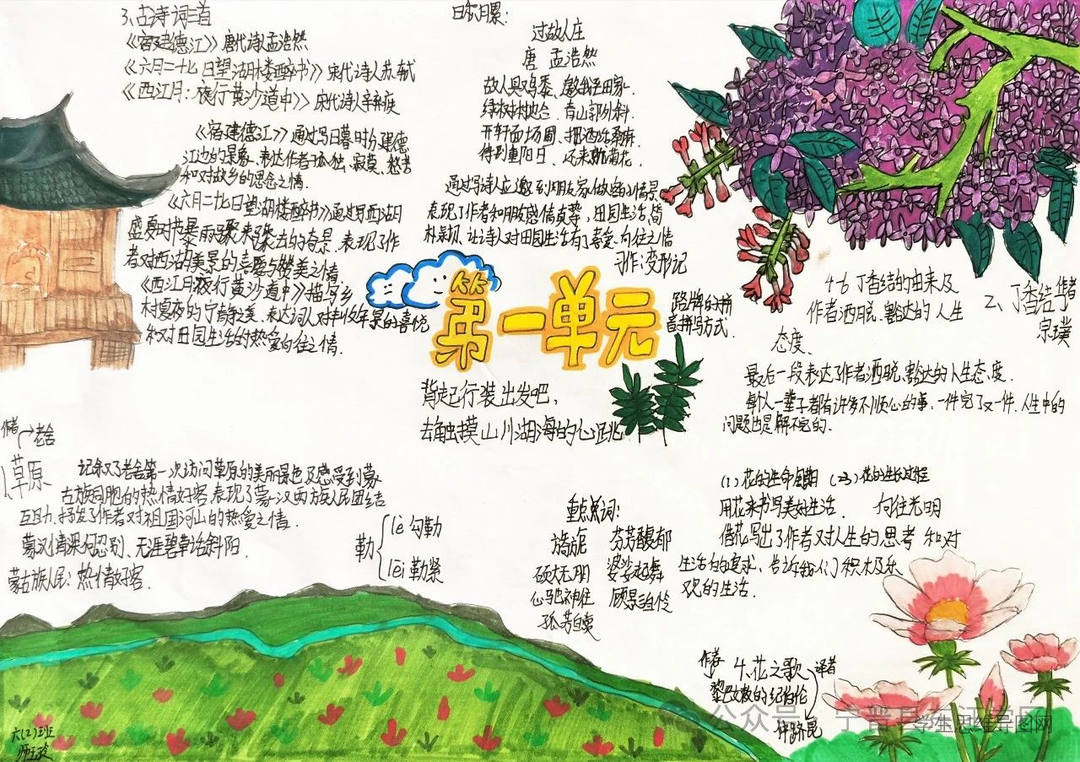 3、古诗词三首
《宿建德江》唐代诗人孟浩然
《六月二十七日望湖楼醉书》宋代诗人苏轼
《西江月·夜行黄沙道中》宋代诗人辛弃疾
《宿建德江》通过写日暮时分建德
江边的景象、表达作者孤独、寂寞、愁苦
和对故乡的思念之情.
《六月二十七日望湖楼醉书》通过写西湖
盛夏时节暴雨聚来聚去的奇景、表现了作
者对西湖美景的喜爱与赞美之情
《西江月夜行黄沙道中》描写乡
村夏夜的宁静,表达词人对丰收年景的喜悦
和对田园生活的热爱向往之情.
日积月累:
过故人庄
唐 孟浩然
故人具鸡黍、邀我至田家.
绿树村边合、青山郭外斜.
开轩面场圃、把酒话桑麻
待到重阳日、还来就菊花.
通过写诗人应邀到朋友家做客的情景
表现了作者和朋友感情真挚,田园生活简
朴亲切、让诗人对田园生活有了喜爱、向往之情
习作:变形记
第一单元
路牌的拼
音拼写方式.
背起行装出发吧,
去触摸山川湖海的心跳
2、丁香结 作者
宗璞
4-6 丁香结的由来及
作者洒脱、豁达的人生
态度.
最后一段表达了作者洒脱、豁达的人生态度.
每个人一辈子都有许多不顺心的事、一件完了又一件.人生中的
问题也是解不完的.
作者→老舍
1草原
记叙了老舍第一次访问草原的美丽景色及感受到蒙
古族同胞的热情好客,表现了蒙汉两族人民团结
互助、抒发了作者对祖国河山的热爱之情.
蒙汉情深何忍别、无涯碧草话斜阳.
蒙古族人民:热情好客.
勒
lè 勾勒
lēi 勒紧
重点单词:
旖旎 芬芳馥郁
硕大无朋 婆娑起舞
心驰神往 顾影自怜
孤芳自赏
(1)花的生命周期 (2、3)花的生长过程
用花来书写美好生活. 向往光明
借花写出了作者对人生的思考和对
生活的追求、告诉我们积极乐
观的生活.
作者 4、花之歌 译者
黎巴嫩的纪伯伦
仲跻昆
六(2)班
公众号
学生思维导图网